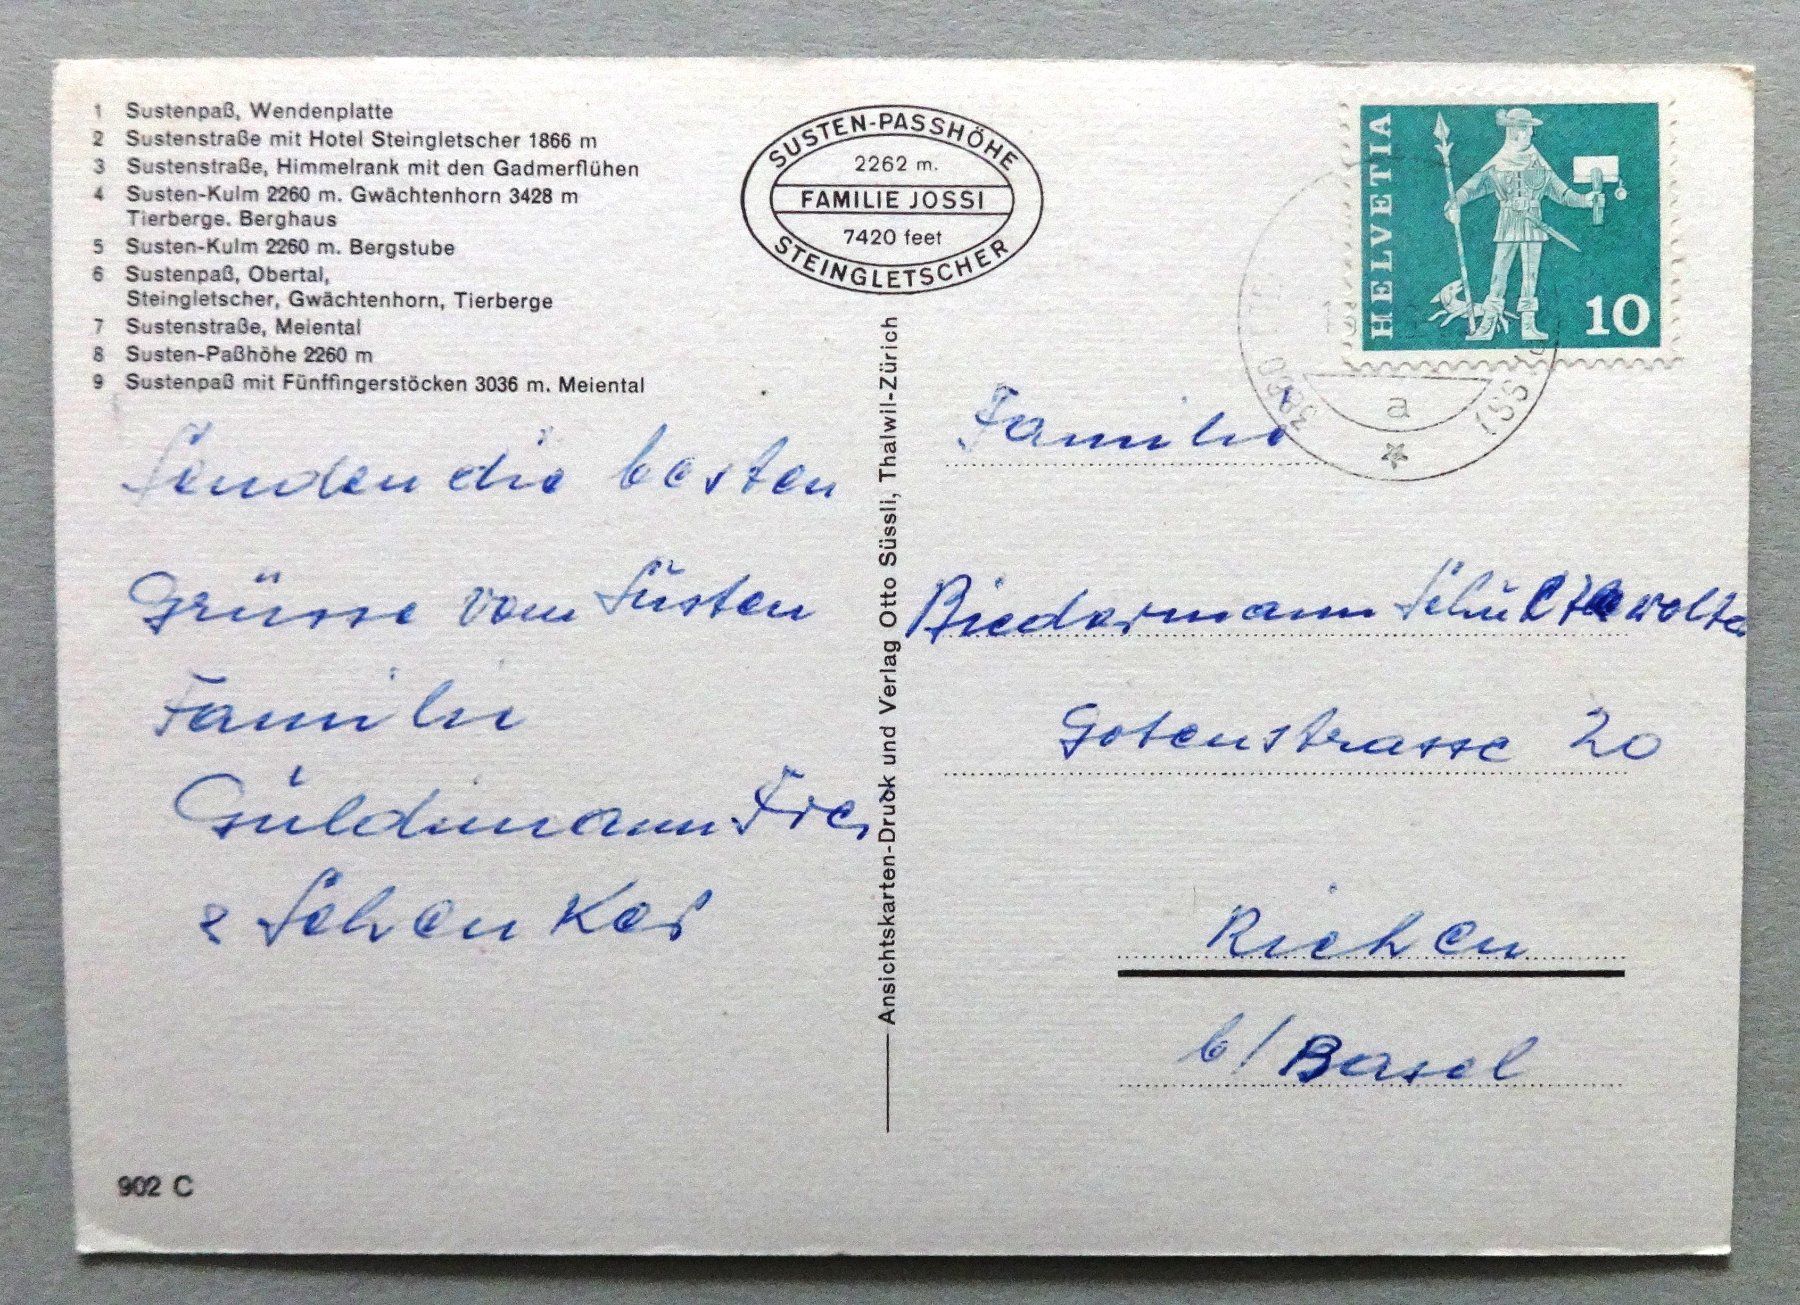 1 Sustenpaß, Wendenplatte
2 Sustenstraße mit Hotel Steingletscher 1866 m
3 Sustenstraße, Himmelrank mit den Gadmerflühen
4 Susten-Kulm 2260 m. Gwächtenhorn 3428 m
Tierberge. Berghaus
5 Susten-Kulm 2260 m. Bergstube
6 Sustenpaß, Obertal,
Steingletscher, Gwächtenhorn, Tierberge
7 Sustenstraße, Meiental
8 Susten-Paßhöhe 2260 m
9 Sustenpaß mit Fünffingerstöcken 3036 m. Meiental
SUSTEN-PASSHÖHE
2262 m.
FAMILIE JOSSI
7420 feet
STEINGLETSCHER
HELVETIA
10
a
Senden die besten
Grüsse vom Susten
Familie
Güldimann Frei
& Schenker
Ansichtskarten-Druck und Verlag Otto Süssli, Thalwil-Zürich
Familie
Biedermann
Gotenstrasse 20
Riehen
b/Basel
902 C